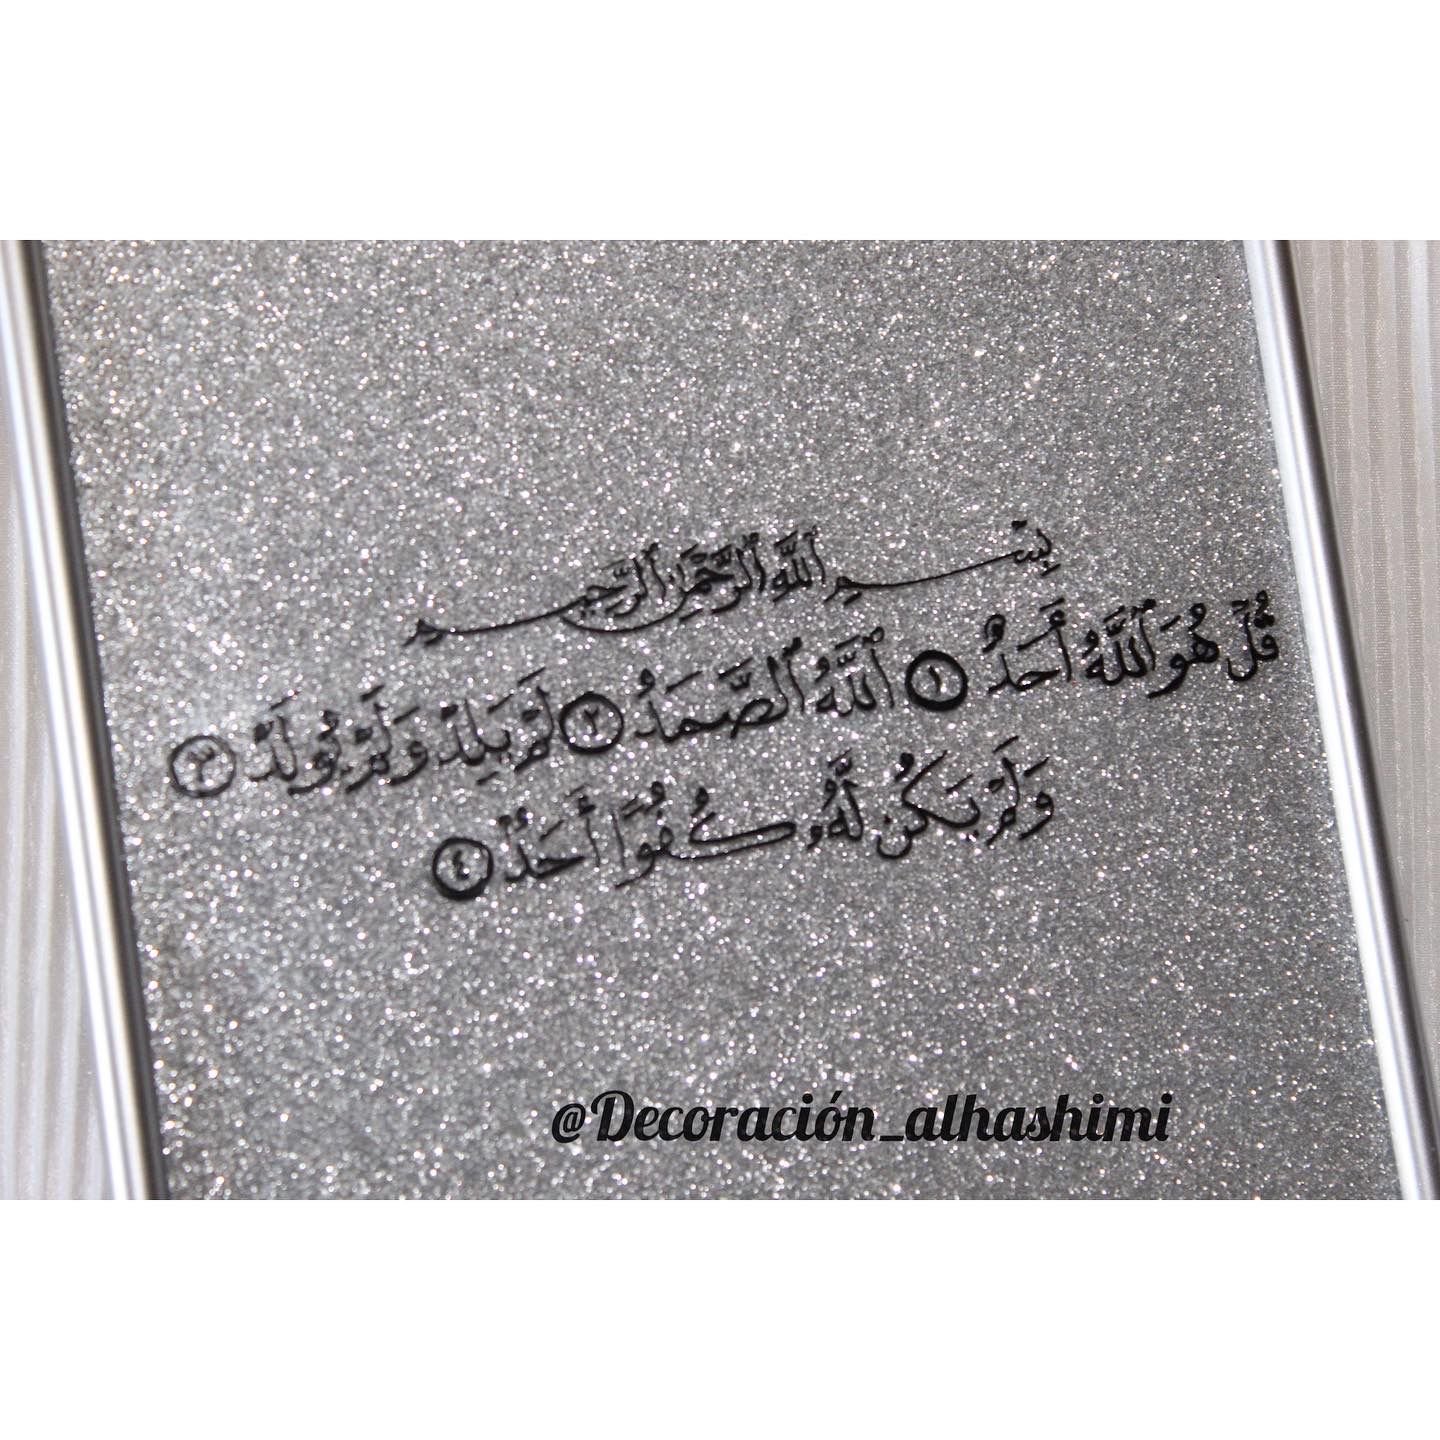 بِسْمِ ٱللَّهِ ٱلرَّحْمَٰنِ ٱلرَّحِيمِ
قُلْ هُوَ ٱللَّهُ أَحَدٌ ١ ٱللَّهُ ٱلصَّمَدُ ٢ لَمْ يَلِدْ وَلَمْ يُولَدْ ٣
وَلَمْ يَكُن لَّهُۥ كُفُوًا أَحَدٌۢ ٤
@Decoración_alhashimi